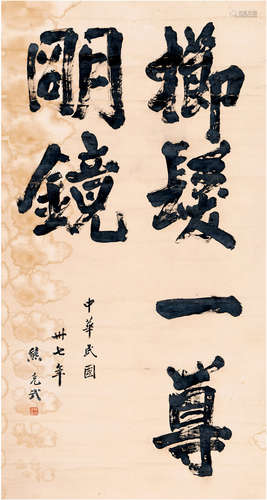 髮一尊
明鏡
中華民國
卅七年
熊克武